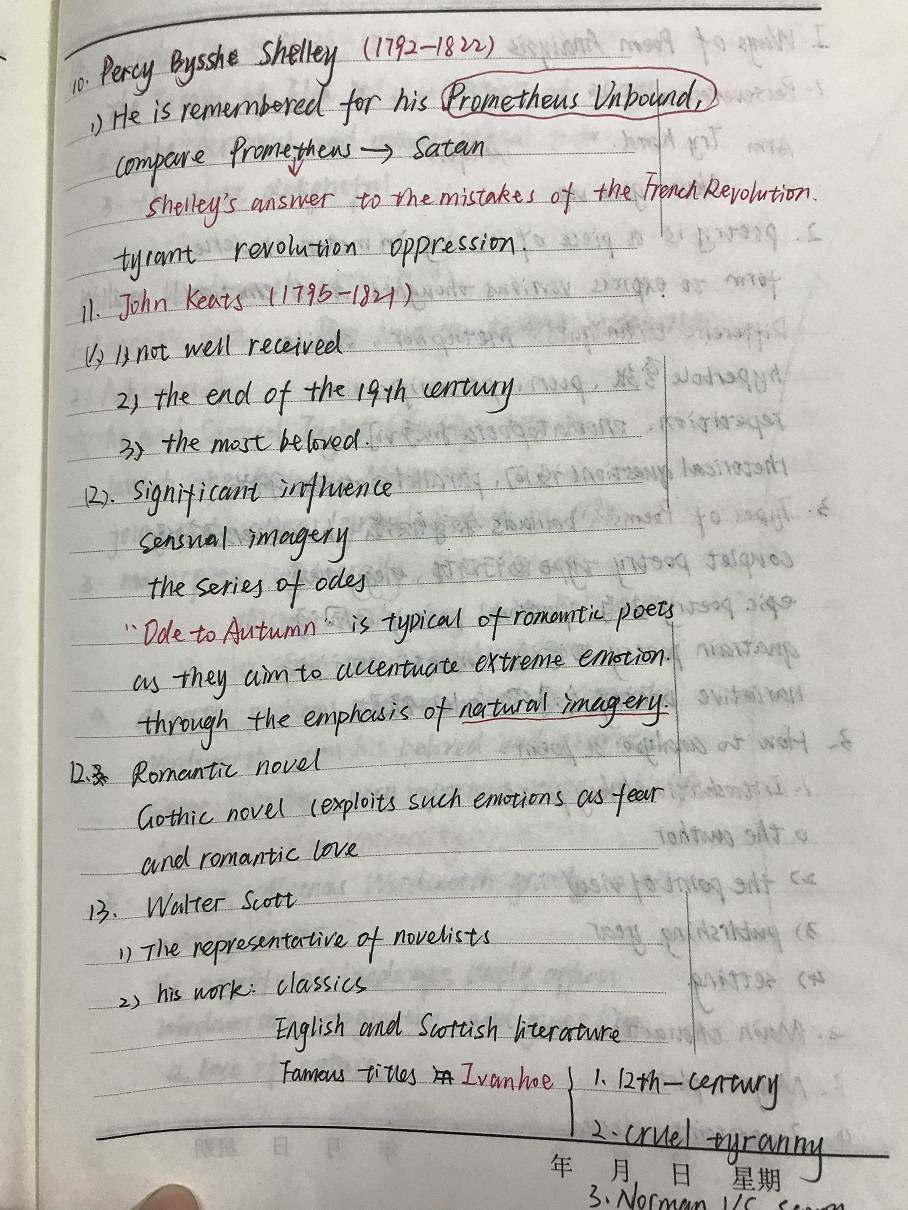 10. Percy Bysshe Shelley (1792-1822)
1) He is remembered for his Prometheus Unbound,
compare Prometheus → Satan
Shelley's answer to the mistakes of the French Revolution.
tyrant revolution oppression.
11. John Keats (1795-1821)
(1) 1) not well received
2) the end of the 19th century
3) the most beloved.
(2). Significant influence
sensual imagery
the series of odes
"Ode to Autumn" is typical of romantic poets
as they aim to accentuate extreme emotion.
through the emphasis of natural imagery.
12. Romantic novel
Gothic novel (exploits such emotions as fear
and romantic love
13. Walter Scott
1) The representative of novelists
2) his work: classics
English and Scottish literature
Famous titles Ivanhoe } 1. 12th-century
2. cruel tyranny
年 月 日 星期
3. Norman V/S